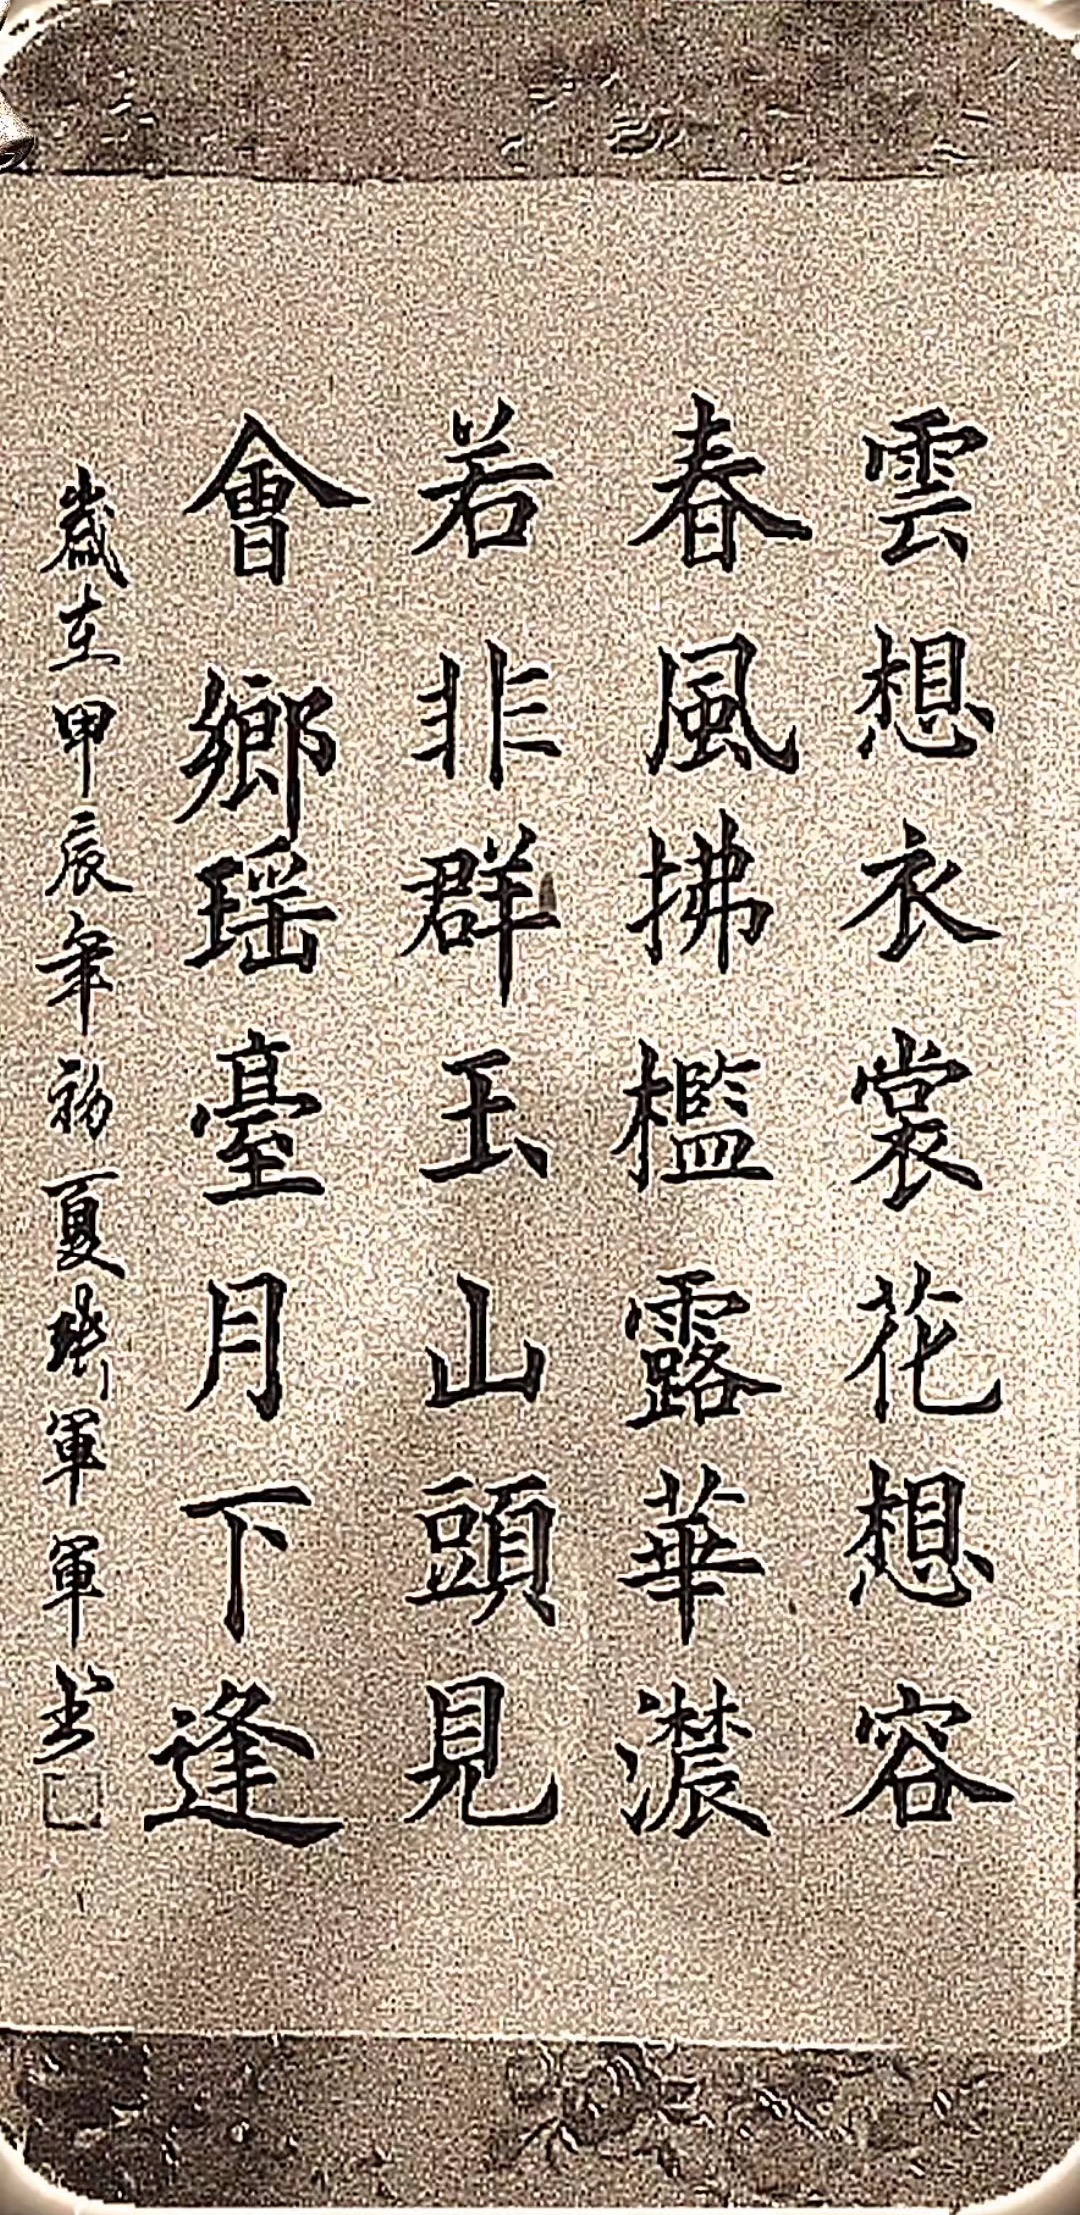 雲想衣裳花想容
春風拂檻露華濃
若非群玉山頭見
會鄉瑶臺月下逢
歲在甲辰年初夏 軍軍書